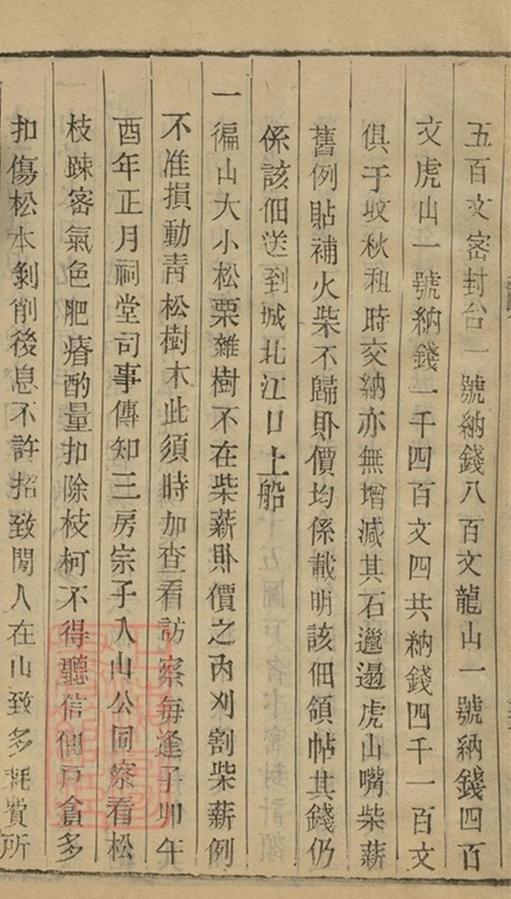 五百文密封台一號納錢八百文龍山一號納錢四百
文虎山一號納錢一千四百文四共納錢四千一百文
俱于收秋租時交納亦無增減其石邋遢虎山嘴柴薪
舊例貼補火柴不歸卧價均係載明該佃領帖其錢仍
係該佃送到城北江口上船
一徧山大小松栗雜樹不在柴薪卧價之內刈割柴薪例
不准損動青松樹木此須時加查看訪察每逢子卯午
酉年正月祠堂司事傳知三房宗子入山公同察看松
枝踈密氣色肥瘠酌量扣除枝柯不得聽信佃戸貪多
扣傷松本剝削後息不許招致閒人在山致多耗費所